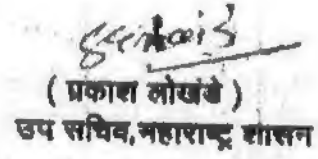 ( प्रकाश लोखंडे )
उप सचिव,महाराष्ट्र शासन